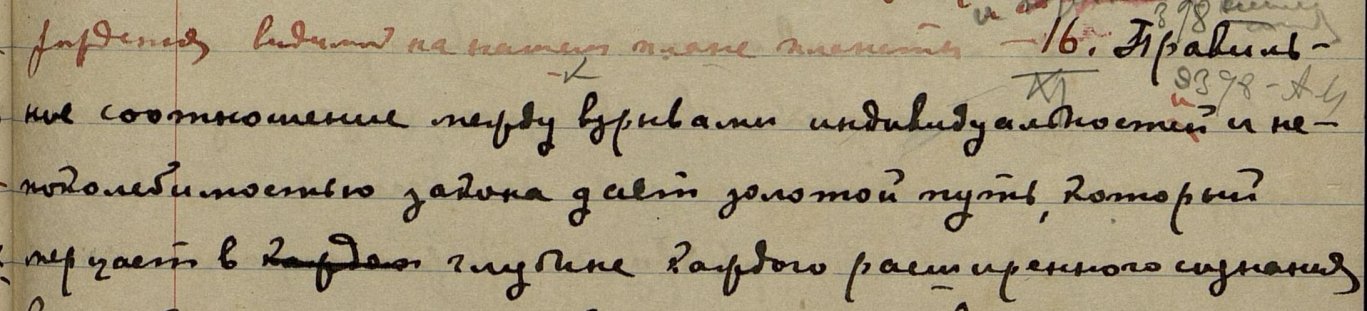 рождения видимой на нашем плане планеты – 16. Правиль-
ное соотношение между взрывами индивидуальностей и не-
поколебимостью закона дает золотой путь, который
мерцает в каждом глубине каждого расширенного сознания